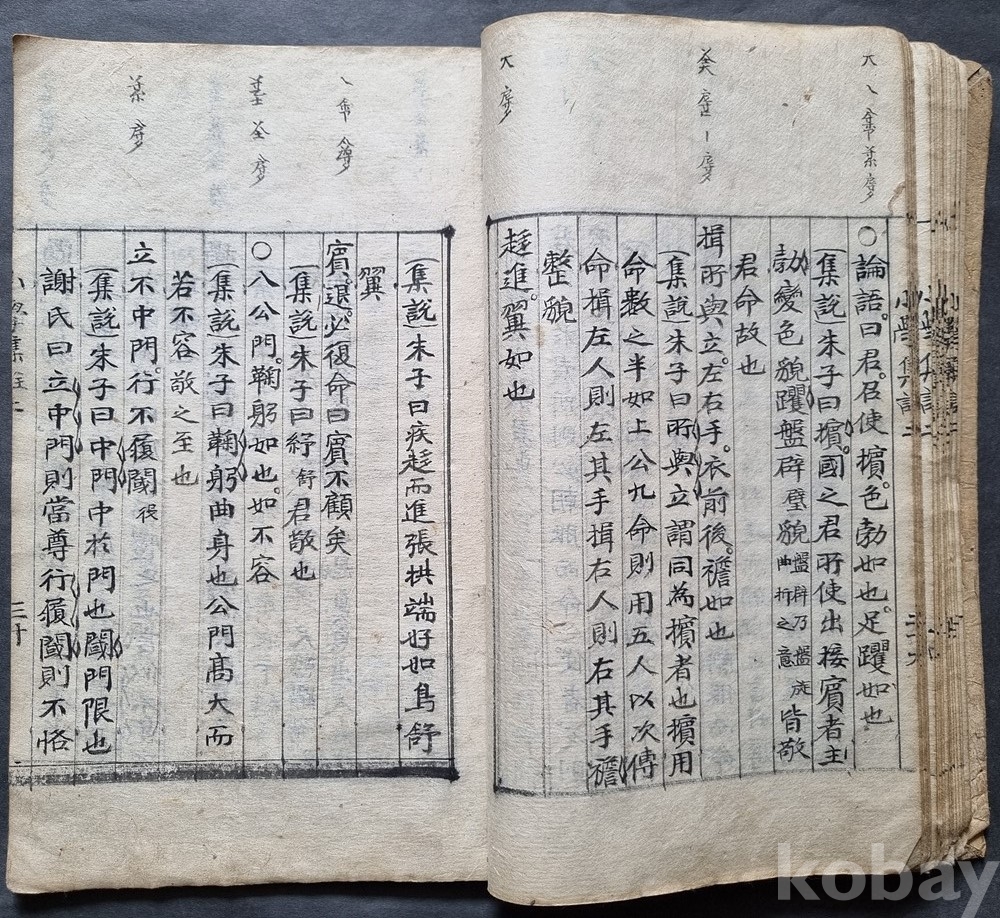 ○論語曰君召使擯色勃如也足躩如也
(集說)朱子曰擯國之君所使出接賓者主
勃變色貌躩盤辟璧貌盤辟乃盤旋曲折之意皆敬
君命故也
揖所與立左右手衣前後襜如也
(集說)朱子曰所與立謂同為擯者也擯用
命數之半如上公九命則用五人以次傳
命揖左人則左其手揖右人則右其手襜
整貌
趍進翼如也
(集說)朱子曰疾趍而進張拱端好如鳥舒
翼
賓退必復命曰賓不顧矣
(集說)朱子曰紓舒君敬也
○入公門鞠躬如也如不容
(集說)朱子曰鞠躬曲身也公門高大而
若不容敬之至也
立不中門行不履閾役
(集說)朱子曰中門中於門也閾門限也
謝氏曰立中門則當尊行履閾則不恪
小學集註二
kobay